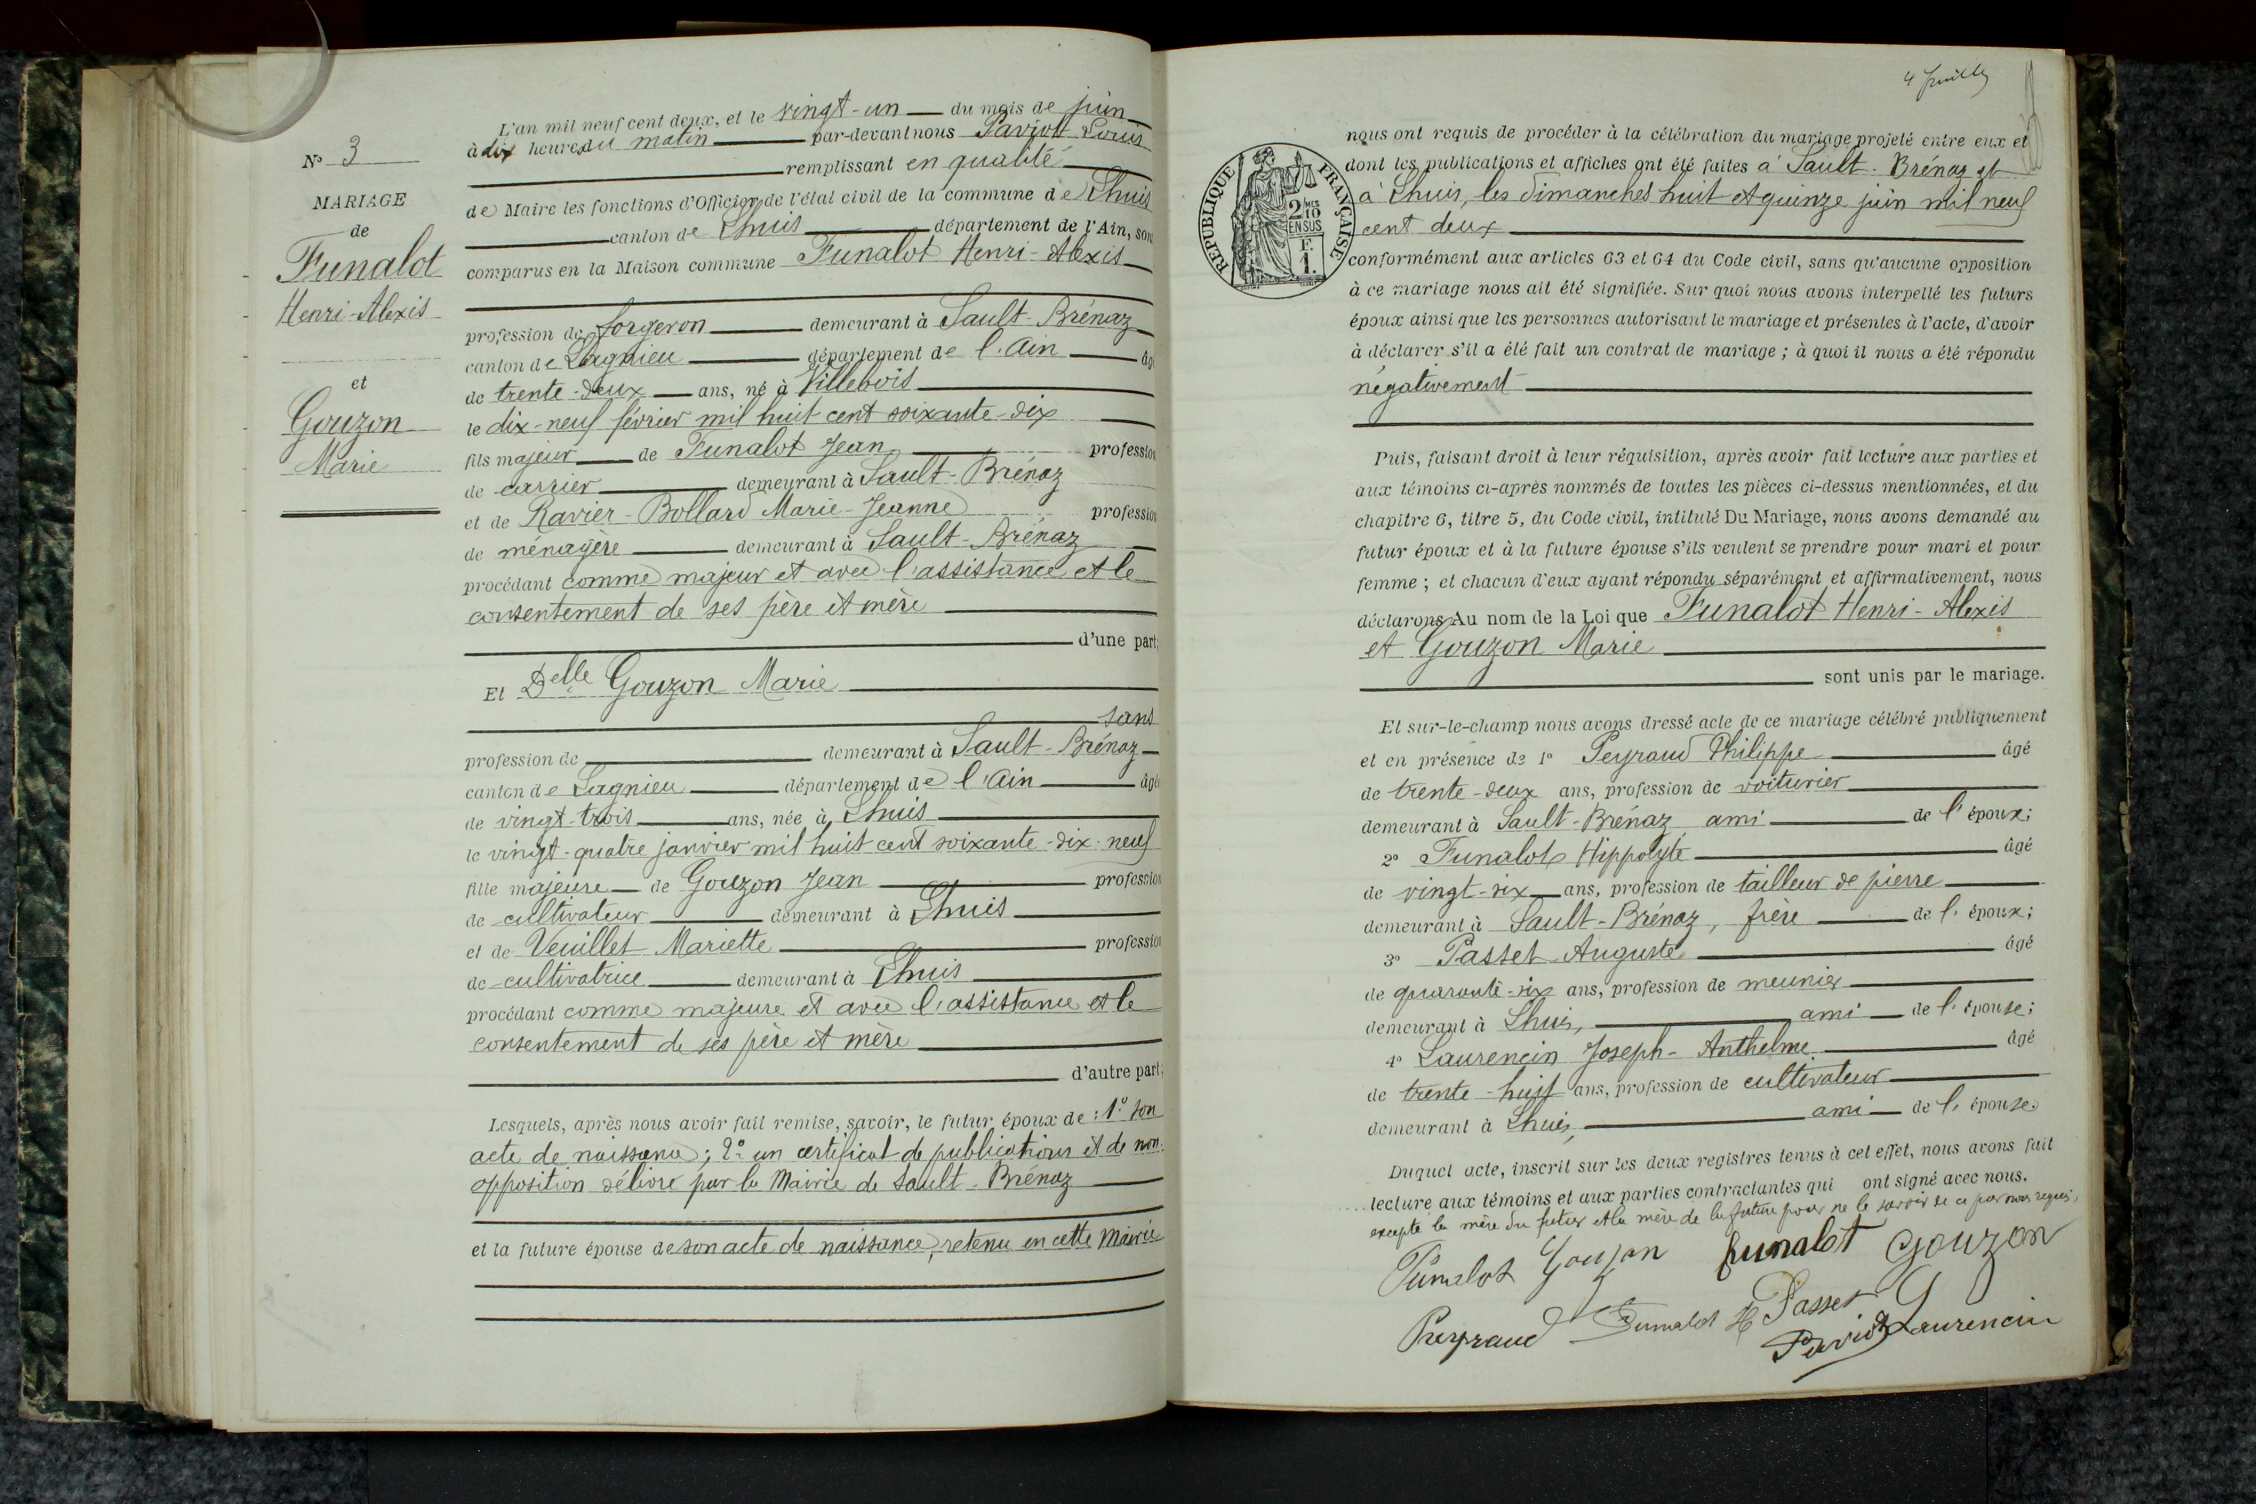 N° 3
MARIAGE
de
Funalot
Henri-Alexis
et
Gouzon
Marie
L'an mil neuf cent deux, et le vingt-un du mois de juin
à dix heures du matin par-devant nous Paviot Louis
remplissant en qualité
de Maire les fonctions d'Officier de l'état civil de la commune de Lhuis
canton de Lhuis département de l'Ain, sont
comparus en la Maison commune Funalot Henri-Alexis
profession de forgeron demeurant à Sault-Brénaz
canton de Lagnieu département de l'Ain âgé
de trente-deux ans, né à Villebois
le dix-neuf février mil huit cent soixante-dix
fils majeur de Funalot Jean profession
de carrier demeurant à Sault-Brénaz
et de Ravier-Bollard Marie-Jeanne profession
de ménagère demeurant à Sault-Brénaz
procédant comme majeur et avec l'assistance et le
consentement de ses père et mère
d'une part;
Et Delle Gouzon Marie
sans
profession de demeurant à Sault-Brénaz
canton de Lagnieu département de l'Ain âgée
de vingt-trois ans, née à Lhuis
le vingt-quatre janvier mil huit cent soixante-dix-neuf
fille majeure de Gouzon Jean profession
de cultivateur demeurant à Lhuis
et de Veuillet Mariette profession
de cultivatrice demeurant à Lhuis
procédant comme majeure et avec l'assistance et le
consentement de ses père et mère
d'autre part;
Lesquels, après nous avoir fait remise, savoir, le futur époux de : 1° son
acte de naissance; 2° un certificat de publications et de non-
opposition délivré par la Mairie de Sault-Brénaz
et la future épouse de son acte de naissance, retenu en cette Mairie
4 Juillet
REPUBLIQUE FRANÇAISE
2/10
EN SUS
F.
1.
nous ont requis de procéder à la célébration du mariage projeté entre eux et
dont les publications et affiches ont été faites à Sault-Brénaz et
à Lhuis, les dimanches huit et quinze juin mil neuf
cent deux
conformément aux articles 63 et 64 du Code civil, sans qu'aucune opposition
à ce mariage nous ait été signifiée. Sur quoi nous avons interpellé les futurs
époux ainsi que les personnes autorisant le mariage et présentes à l'acte, d'avoir
à déclarer s'il a été fait un contrat de mariage ; à quoi il nous a été répondu
négativement
Puis, faisant droit à leur réquisition, après avoir fait lecture aux parties et
aux témoins ci-après nommés de toutes les pièces ci-dessus mentionnées, et du
chapitre 6, titre 5, du Code civil, intitulé Du Mariage, nous avons demandé au
futur époux et à la future épouse s'ils veulent se prendre pour mari et pour
femme ; et chacun d'eux ayant répondu séparément et affirmativement, nous
déclarons Au nom de la Loi que Funalot Henri-Alexis
et Gouzon Marie
sont unis par le mariage.
Et sur-le-champ nous avons dressé acte de ce mariage célébré publiquement
et en présence de 1° Peyraud Philippe âgé
de trente-deux ans, profession de voiturier
demeurant à Sault-Brénaz ami de l'époux;
2° Funalot Hippolyte âgé
de vingt-six ans, profession de tailleur de pierre
demeurant à Sault-Brénaz, frère de l'époux;
3° Passet Auguste âgé
de quarante-six ans, profession de meunier
demeurant à Lhuis, ami de l'épouse;
4° Laurencin Joseph-Anthelme âgé
de trente-huit ans, profession de cultivateur
demeurant à Lhuis, ami de l'épouse.
Duquel acte, inscrit sur les deux registres tenus à cet effet, nous avons fait
lecture aux témoins et aux parties contractantes qui ont signé avec nous.
excepté la mère du futur et la mère de la future pour ne le savoir de ce par nous requis.
Funalot Gouzon funalot Gouzon
Peyraud Funalot H Passet
Paviot Laurencin